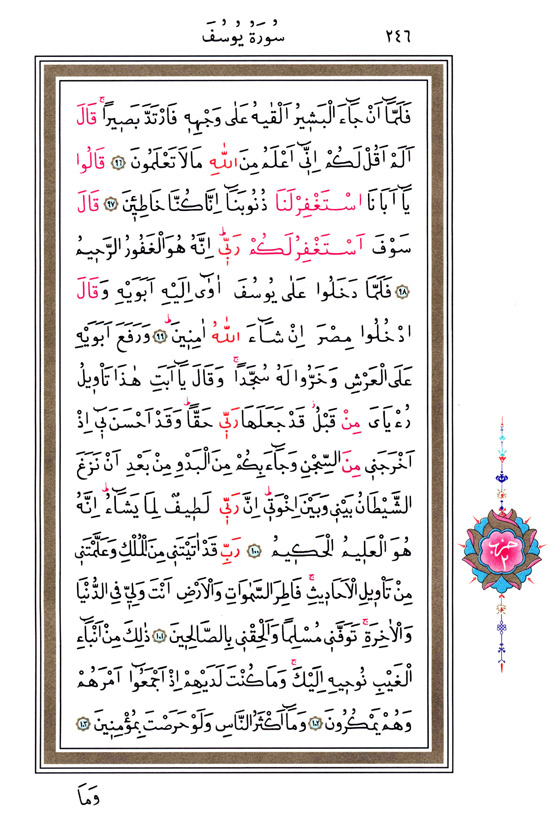 ٢٤٦ سُورَةُ يُوسُفَ
فَلَمَّٓا اَنْ جَٓاءَ الْبَش۪يرُ اَلْقٰيهُ عَلٰى وَجْهِه۪ فَارْتَدَّ بَص۪يراًۚ قَالَ
اَلَمْ اَقُلْ لَكُمْ اِنّ۪ٓي اَعْلَمُ مِنَ اللّٰهِ مَا لَا تَعْلَمُونَ ﴿٩٦﴾ قَالُوا
يَٓا اَبَانَا اسْتَغْفِرْ لَنَا ذُنُوبَنَٓا اِنَّا كُنَّا خَاطِـ۪ٔينَ ﴿٩٧﴾ قَالَ
سَوْفَ اَسْتَغْفِرُ لَكُمْ رَبّ۪يۜ اِنَّهُ هُوَ الْغَفُورُ الرَّح۪يمُ
﴿٩٨﴾ فَلَمَّا دَخَلُوا عَلٰى يُوسُفَ اٰوٰٓى اِلَيْهِ اَبَوَيْهِ وَقَالَ
ادْخُلُوا مِصْرَ اِنْ شَٓاءَ اللّٰهُ اٰمِن۪ينَۜ ﴿٩٩﴾ وَرَفَعَ اَبَوَيْهِ
عَلَى الْعَرْشِ وَخَرُّوا لَهُ سُجَّداًۚ وَقَالَ يَٓا اَبَتِ هٰذَا تَأْو۪يلُ
رُءْيَايَ مِنْ قَبْلُۘ قَدْ جَعَلَهَا رَبّ۪ي حَقاًّۜ وَقَدْ اَحْسَنَ ب۪ٓي اِذْ
اَخْرَجَن۪ي مِنَ السِّجْنِ وَجَٓاءَ بِكُمْ مِنَ الْبَدْوِ مِنْ بَعْدِ اَنْ نَزَغَ
الشَّيْطَانُ بَيْن۪ي وَبَيْنَ اِخْوَت۪يۜ اِنَّ رَبّ۪ي لَط۪يفٌ لِمَا يَشَٓاءُۜ اِنَّهُ
هُوَ الْعَل۪يمُ الْحَك۪يمُ ﴿١٠٠﴾ رَبِّ قَدْ اٰتَيْتَن۪ي مِنَ الْمُلْكِ وَعَلَّمْتَن۪ي
مِنْ تَأْو۪يلِ الْاَحَاد۪يثِۚ فَاطِرَ السَّمٰوَاتِ وَالْاَرْضِ اَنْتَ وَلِيّ۪ فِي الدُّنْيَا
وَالْاٰخِرَةِۚ تَوَفَّن۪ي مُسْلِماً وَاَلْحِقْن۪ي بِالصَّالِح۪ينَ ﴿١٠١﴾ ذٰلِكَ مِنْ اَنْبَٓاءِ
الْغَيْبِ نُوح۪يهِ اِلَيْكَۚ وَمَا كُنْتَ لَدَيْهِمْ اِذْ اَجْمَعُٓوا اَمْرَهُمْ
وَهُمْ يَمْكُرُونَ ﴿١٠٢﴾ وَمَٓا اَكْثَرُ النَّاسِ وَلَوْ حَرَصْتَ بِمُؤْمِن۪ينَ ﴿١٠٣﴾
وَمَا
حزب
٢